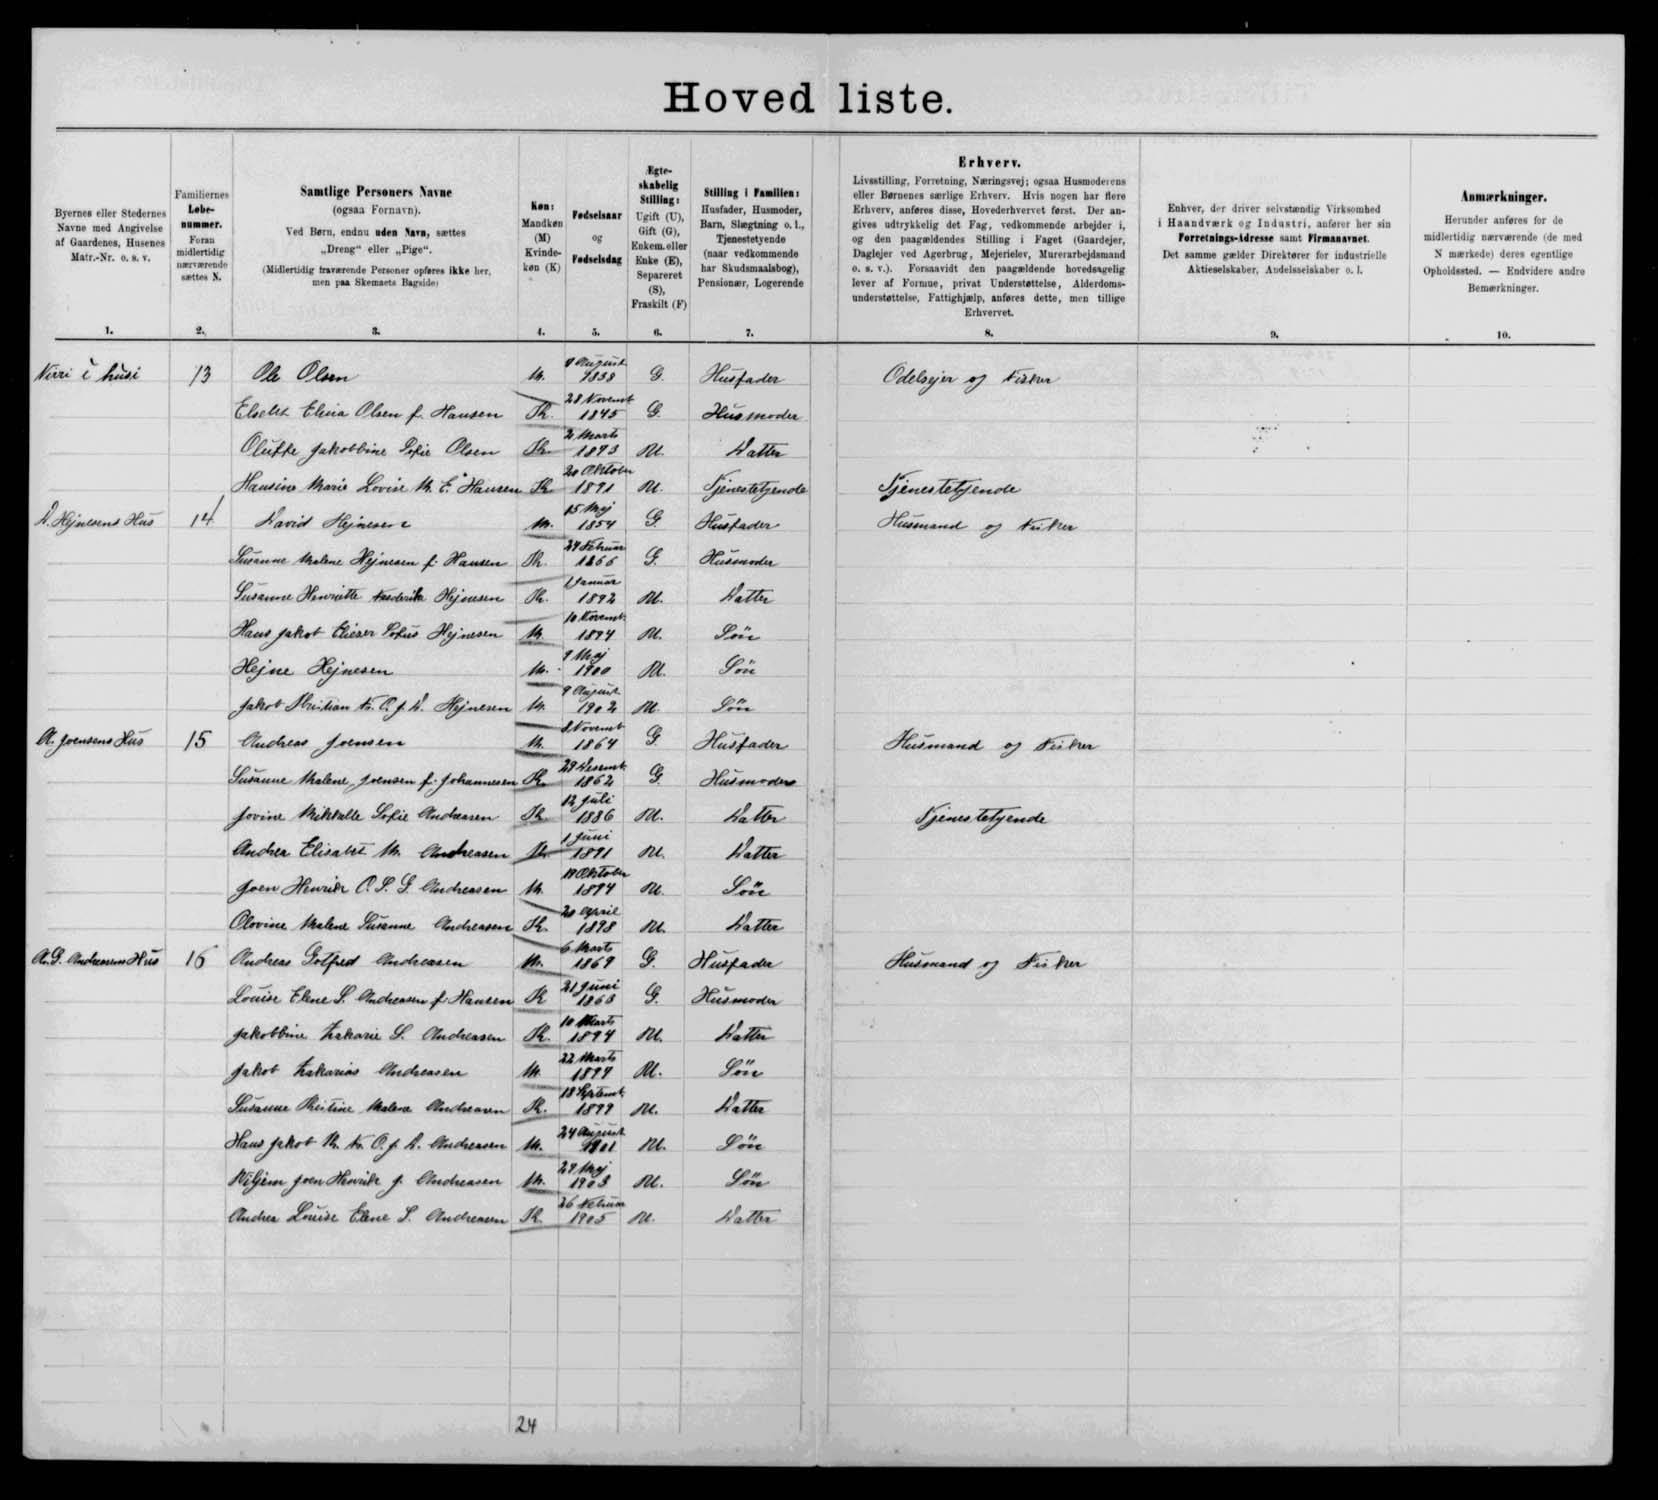 Hoved liste.
Byernes eller Stedernes Navne med Angivelse af Gaardenes, Husenes Matr.-Nr. o. s. v.
Familiernes Løbenummer. Foran midlertidig nærværende sættes N.
Samtlige Personers Navne
(ogsaa Fornavn).
Ved Børn, endnu uden Navn, sættes „Dreng“ eller „Pige“.
(Midlertidig fraværende Personer opføres ikke her, men paa Skemaets Bagside)
Køn: Mandkøn (M) Kvindekøn (K)
Fødselsaar og Fødselsdag
Egteskabelig Stilling: Ugift (U), Gift (G), Enkem. eller Enke (E), Separeret (S), Fraskilt (F)
Stilling i Familien: Husfader, Husmoder, Barn, Slægtning o. l., Tjenestetyende (naar vedkommende har Skudsmaalsbog), Pensionær, Logerende
Erhverv.
Livsstilling, Forretning, Næringsvej; ogsaa Husmoderens
eller Børnenes særlige Erhverv. Hvis nogen har flere
Erhverv, anføres disse, Hovederhvervet først. Der angives udtrykkelig det Fag, vedkommende arbejder i,
og den paagældendes Stilling i Faget (Gaardejer,
Daglejer ved Agerbrug, Mejerielev, Murerarbejdsmand
o. s. v.). Forsaavidt den paagældende hovedsagelig
lever af Formue, privat Understøttelse, Alderdomsunderstøttelse, Fattighjælp, anføres dette, men tillige
Erhvervet.
Enhver, der driver selvstændig Virksomhed
i Haandværk og Industri, anfører her sin
Forretnings-Adresse samt Firmanavnet.
Det samme gælder Direktører for industrielle
Aktieselskaber, Andelsselskaber o. l.
Anmærkninger.
Herunder anføres for de
midlertidig nærværende (de med
N mærkede) deres egentlige
Opholdssted. — Endvidere andre
Bemærkninger.
1. 2. 3. 4. 5. 6. 7. 8. 9. 10.
Nirri i húsi 13 Ole Olsen M. 9 August 1838 G. Husfader Odelsejer og Fisker
Elsebet Elina Olsen f. Hansen K. 28 Novemb 1845 G. Husmoder
Oluffe Jakobbine Sofie Olsen K. 2 Marts 1893 U. Datter
Hansine Marie Lovise M. E. Hansen K. 20 Oktober 1891 U. Tjenestetyende Tjenestetyende
D. Hejnesens Hus 14 David Hejnesen M. 15 Maj 1854 G. Husfader Husmand og Fisker
Susanne Malene Hejnesen f. Hansen K. 24 Februar 1866 G. Husmoder
Susanne Henriette Frederikke Hejnesen K. 1 Januar 1892 U. Datter
Hans Jakob Elieser Sofus Hejnesen M. 10 Novemb. 1894 U. Søn
Hejne Hejnesen M. 9 Maj 1900 U. Søn
Jakob Kristian Fr. O. J. D. Hejnesen M. 9 August 1902 U. Søn
A. Joensens Hus 15 Andreas Joensen M. 8 Novemb 1864 G. Husfader Husmand og Fisker
Susanne Malene Joensen f. Johannesen K. 29 Desemb. 1862 G. Husmoder
Jovine Mikkalle Sofie Andreasen K. 12 Juli 1886 U. Datter Tjenestetyende
Andrea Elisabet M. Andreasen 1 Juni 1891 U. Datter
Joen Henrik O. S. G. Andreasen M. Oktober 1894 U. Søn
Olovine Malene Susanne Andreasen K. 20 April 1898 U. Datter
A. G. Andreasens Hus 16 Andreas Gotfred Andreasen M. 6 Marts 1869 G. Husfader Husmand og Fisker
Louise Elene S. Andreasen f. Hansen K 21 Juni 1868 G. Husmoder
Jakobbine Zakarie S. Andreasen K. 10 Marts 1894 U. Datter
Jakob Zakarias Andreasen M. 22 Marts 1897 U. Søn
Susanne Kristine Malene Andreasen K. 18 Septemb. 1899 U. Datter
Hans Jakob M. Fr. O. J. D. Andreasen M. 24 August 1901 U. Søn
Viljem Joen Henrik J. Andreasen M. 29 Maj 1903 U. Søn
Andrea Louise Elene S. Andreasen K. 26 Februar 1905 U. Datter
24